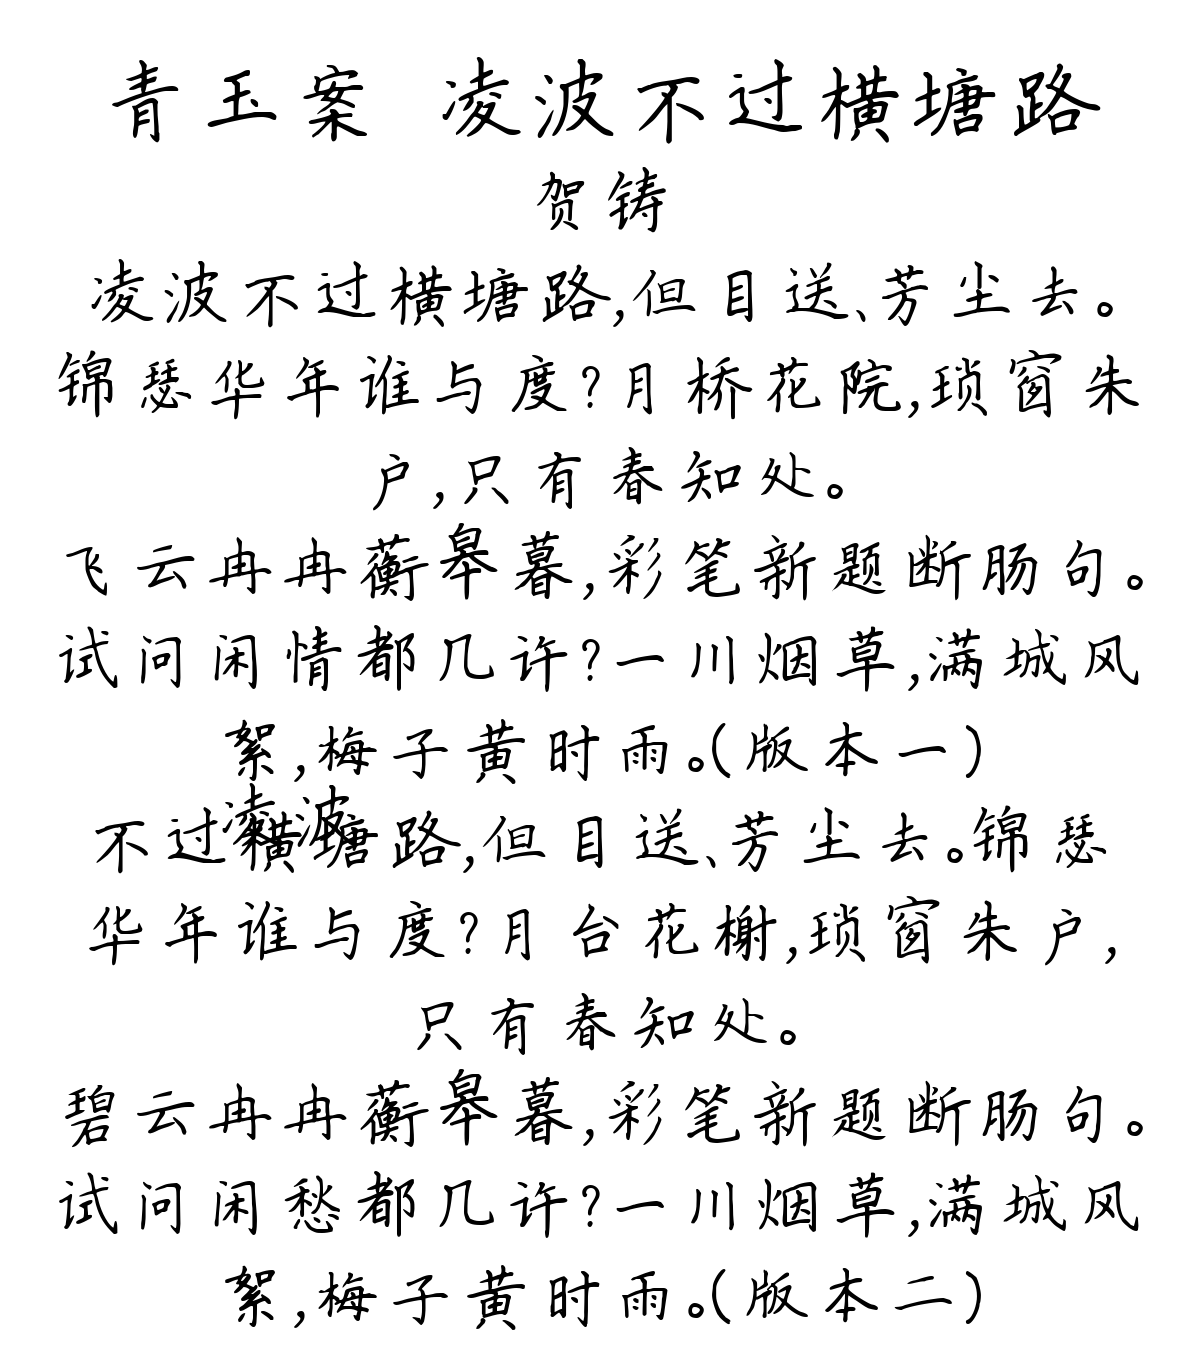 青玉案 凌波不过横塘路
贺铸
凌波不过横塘路,但目送、芳尘去。
锦瑟华年谁与度?月桥花院,琐窗朱
户,只有春知处。
飞云冉冉蘅皋暮,彩笔新题断肠句。
试问闲情都几许?一川烟草,满城风
絮,梅子黄时雨。(版本一)
凌波
不过横塘路,但目送、芳尘去。锦瑟
华年谁与度?月台花榭,琐窗朱户,
只有春知处。
碧云冉冉蘅皋暮,彩笔新题断肠句。
试问闲愁都几许?一川烟草,满城风
絮,梅子黄时雨。(版本二)